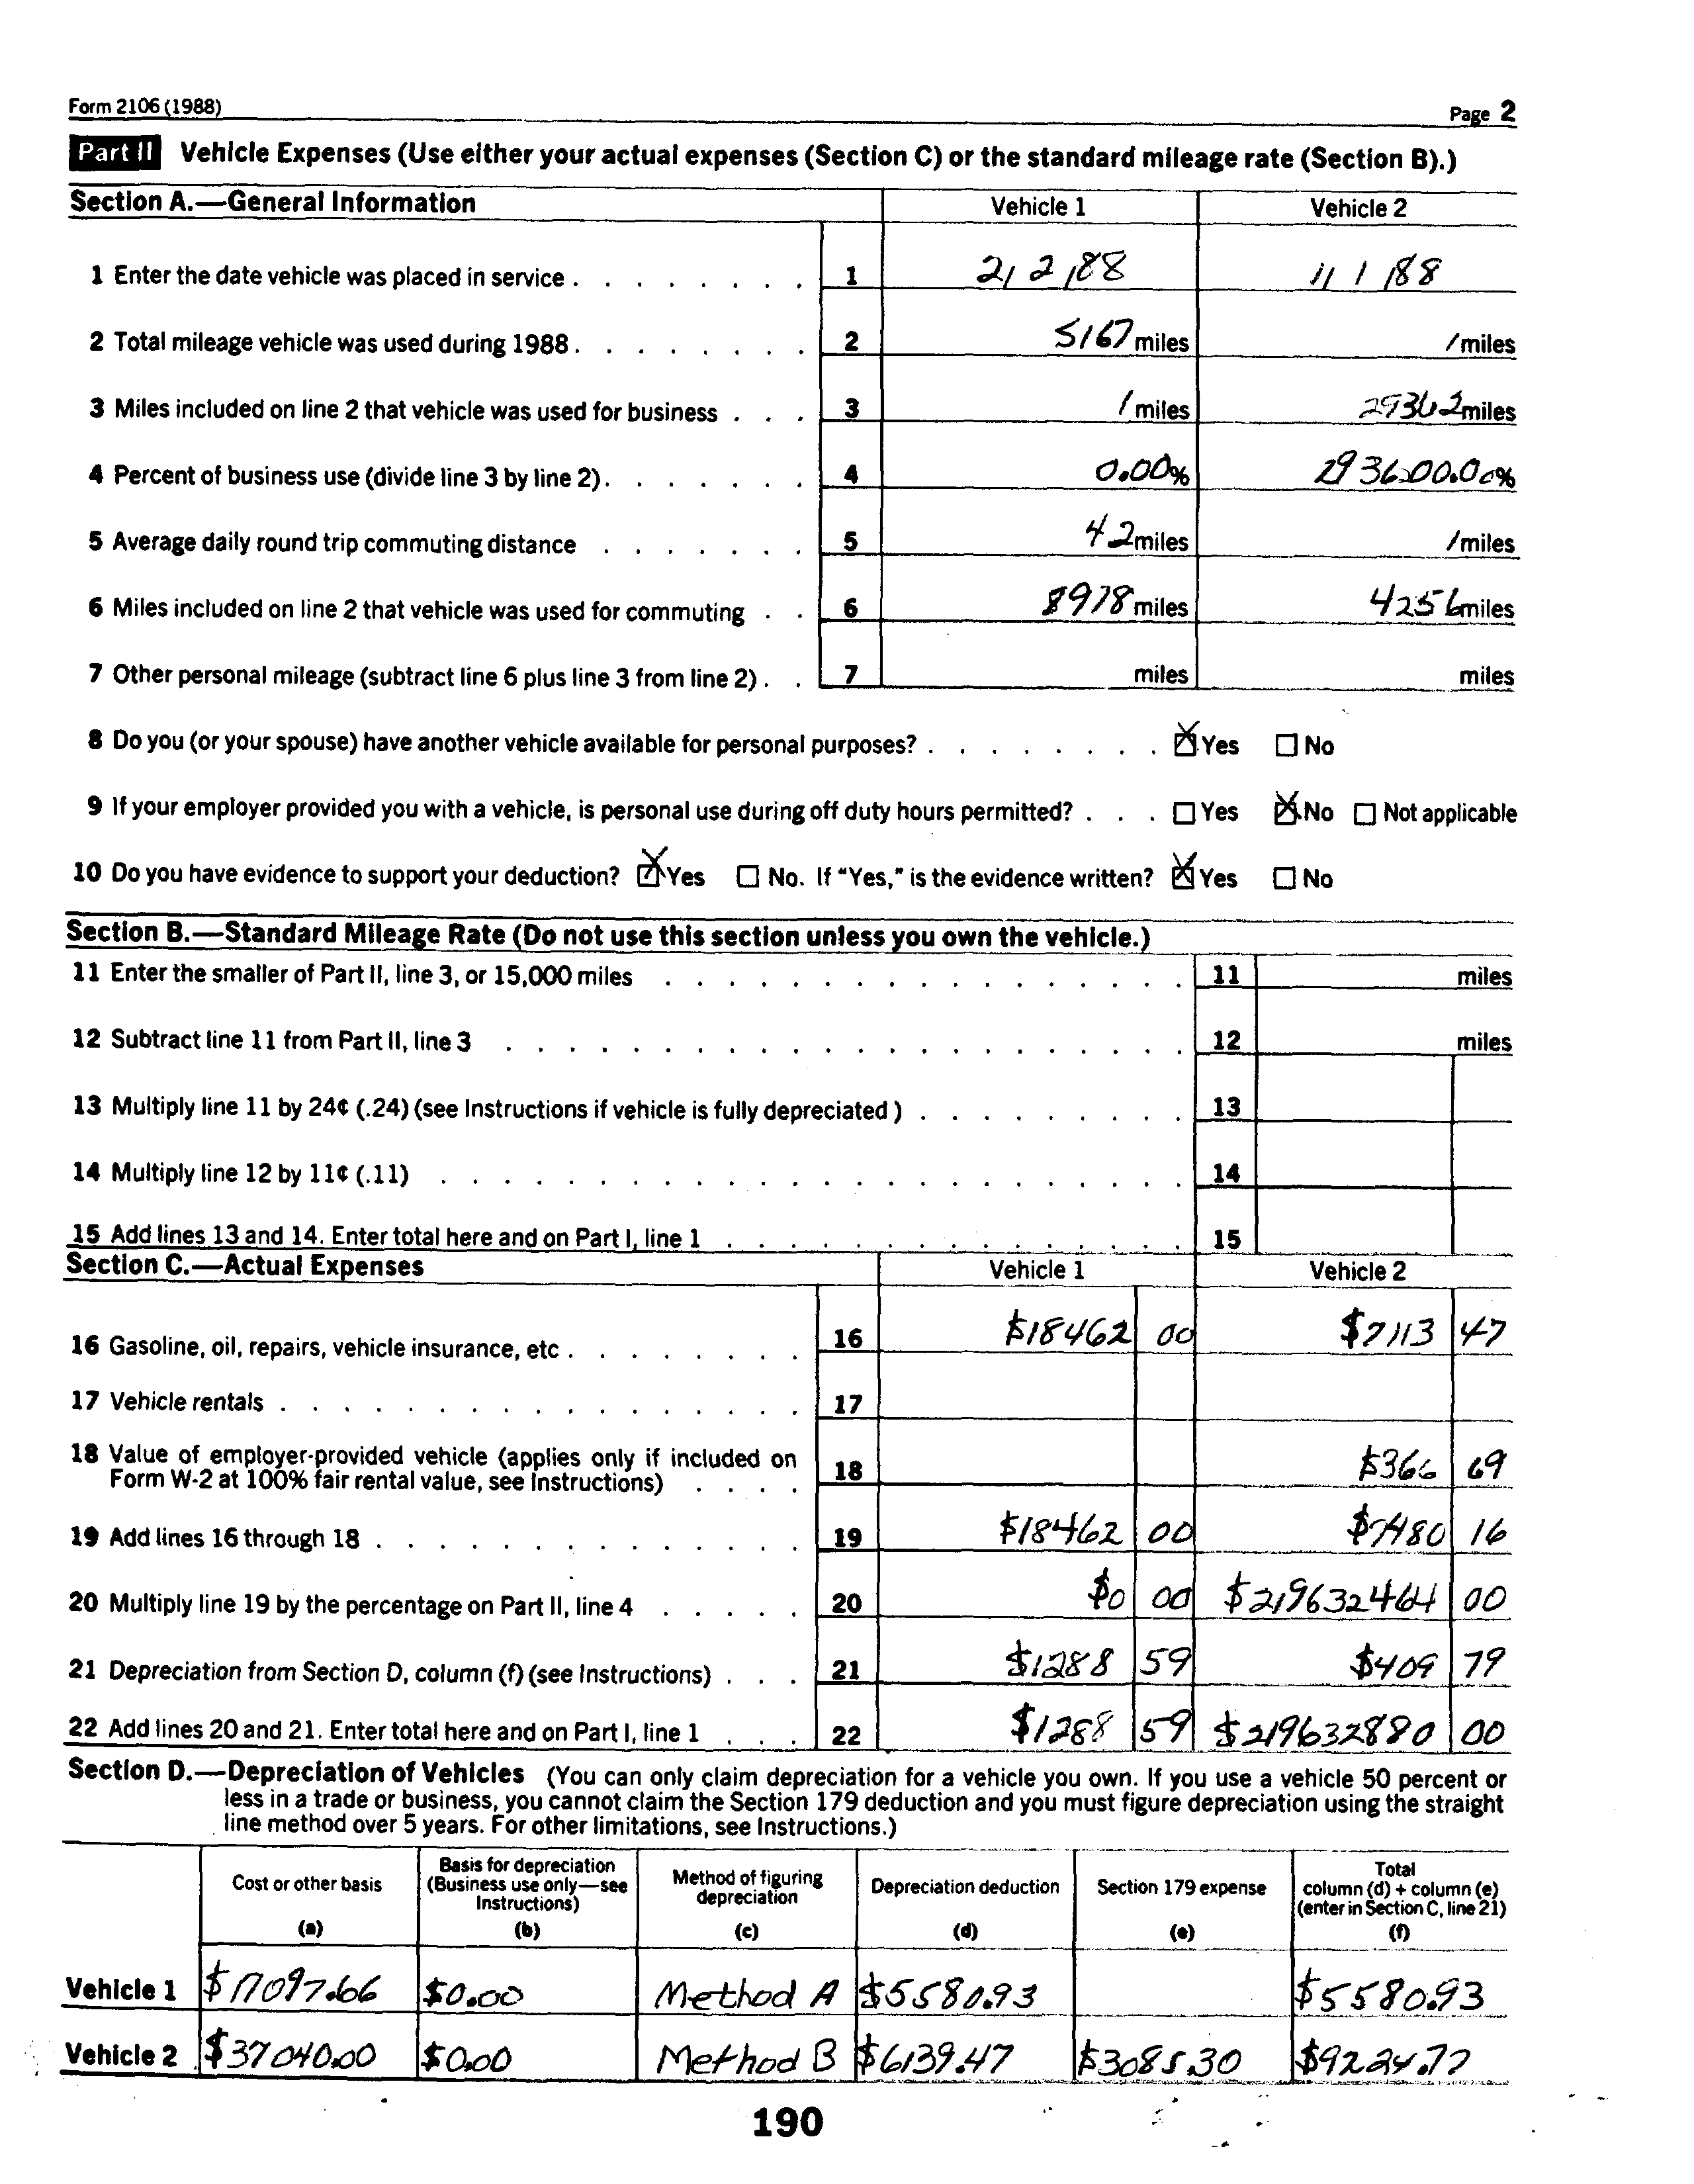 Form 2106 (1988) Page 2
Part II Vehicle Expenses (Use either your actual expenses (Section C) or the standard mileage rate (Section B).)
Section A.—General Information Vehicle 1 Vehicle 2
1 Enter the date vehicle was placed in service . . . . . . . . 1 2/2/88 11/1/88
2 Total mileage vehicle was used during 1988 . . . . . . . . 2 5167 miles 1 miles
3 Miles included on line 2 that vehicle was used for business . . . 3 1 miles 29362 miles
4 Percent of business use (divide line 3 by line 2) . . . . . . . 4 0.00% 293600.00%
5 Average daily round trip commuting distance . . . . . . . 5 42 miles 1 miles
6 Miles included on line 2 that vehicle was used for commuting . . 6 8978 miles 4256 miles
7 Other personal mileage (subtract line 6 plus line 3 from line 2) . . 7 miles miles
8 Do you (or your spouse) have another vehicle available for personal purposes? . . . . . . . . Yes No
9 If your employer provided you with a vehicle, is personal use during off duty hours permitted? . . . Yes No Not applicable
10 Do you have evidence to support your deduction? Yes No. If "Yes," is the evidence written? Yes No
Section B.—Standard Mileage Rate (Do not use this section unless you own the vehicle.)
11 Enter the smaller of Part II, line 3, or 15,000 miles . . . . . . . . . . . . . . . . . 11 miles
12 Subtract line 11 from Part II, line 3 . . . . . . . . . . . . . . . . . . . . . . 12 miles
13 Multiply line 11 by 24¢ (.24) (see Instructions if vehicle is fully depreciated) . . . . . . . . . 13
14 Multiply line 12 by 11¢ (.11) . . . . . . . . . . . . . . . . . . . . . . . . 14
15 Add lines 13 and 14. Enter total here and on Part I, line 1 . . . . . . . . . . . . . . . 15
Section C.—Actual Expenses Vehicle 1 Vehicle 2
16 Gasoline, oil, repairs, vehicle insurance, etc . . . . . . . . 16 $18462 00 $7113 47
17 Vehicle rentals . . . . . . . . . . . . . . . . . 17
18 Value of employer-provided vehicle (applies only if included on
Form W-2 at 100% fair rental value, see Instructions) . . . . 18 $366 69
19 Add lines 16 through 18 . . . . . . . . . . . . . . 19 $18462 00 $7480 16
20 Multiply line 19 by the percentage on Part II, line 4 . . . . . 20 $0 00 $219632464 00
21 Depreciation from Section D, column (f) (see Instructions) . . . 21 $1288 59 $409 79
22 Add lines 20 and 21. Enter total here and on Part I, line 1 . . . 22 $1288 59 $219632880 00
Section D.—Depreciation of Vehicles (You can only claim depreciation for a vehicle you own. If you use a vehicle 50 percent or
less in a trade or business, you cannot claim the Section 179 deduction and you must figure depreciation using the straight
line method over 5 years. For other limitations, see Instructions.)
Cost or other basis (a) Basis for depreciation (Business use only—see Instructions) (b) Method of figuring depreciation (c) Depreciation deduction (d) Section 179 expense (e) Total column (d) + column (e) (enter in Section C, line 21) (f)
Vehicle 1 $17097.66 $0.00 Method A $5580.93 $5580.93
Vehicle 2 $37040.00 $0.00 Method B $6139.47 $3085.30 $9224.77
190